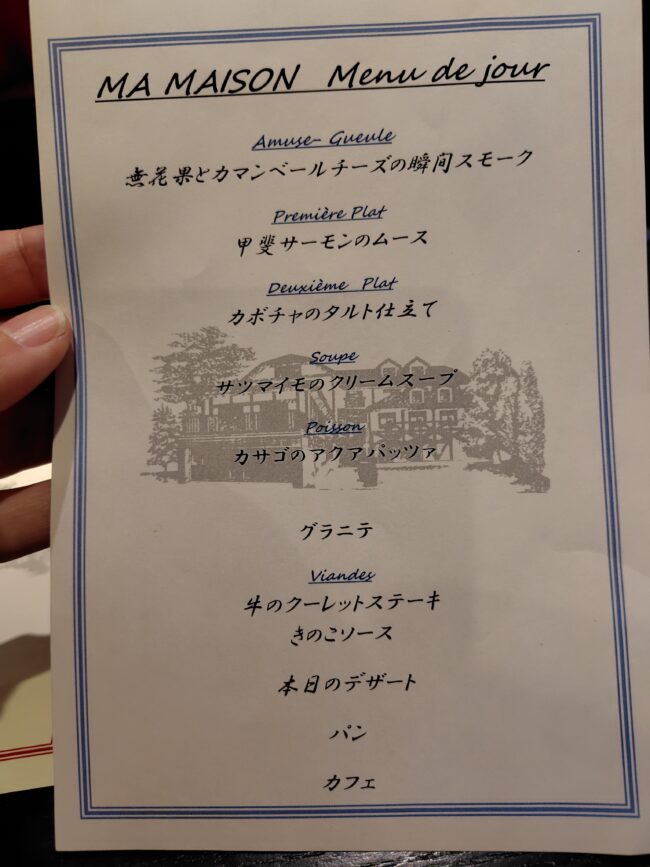 MA MAISON Menu de jour
Amuse- Gueule
無花果とカマンベールチーズの瞬間スモーク
Première Plat
甲斐サーモンのムース
Deuxième Plat
カボチャのタルト仕立て
Soupe
サツマイモのクリームスープ
Poisson
カサゴのアクアパッツァ
グラニテ
Viandes
牛のクーレットステーキ
きのこソース
本日のデザート
パン
カフェ